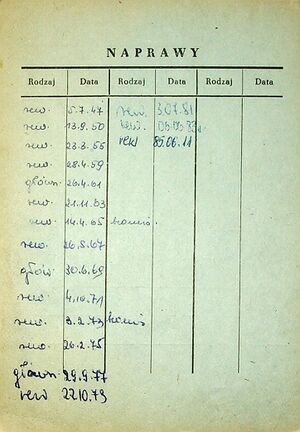 NAPRAWY
Rodzaj Data Rodzaj Data Rodzaj Data
rew. 5.7.47 rew. 30.7.81
rew. 13.9.50 rew.
rew. 23.3.55 rew 85.06.11
rew. 28.4.59
główn. 26.4.61
rew. 21.11.63
rew. 14.4.65
rew. 26.5.67
głów. 30.6.69
rew. 4.10.71
rew. 3.2.73
rew. 26.2.75
główn. 29.9.77
rew 22.10.79